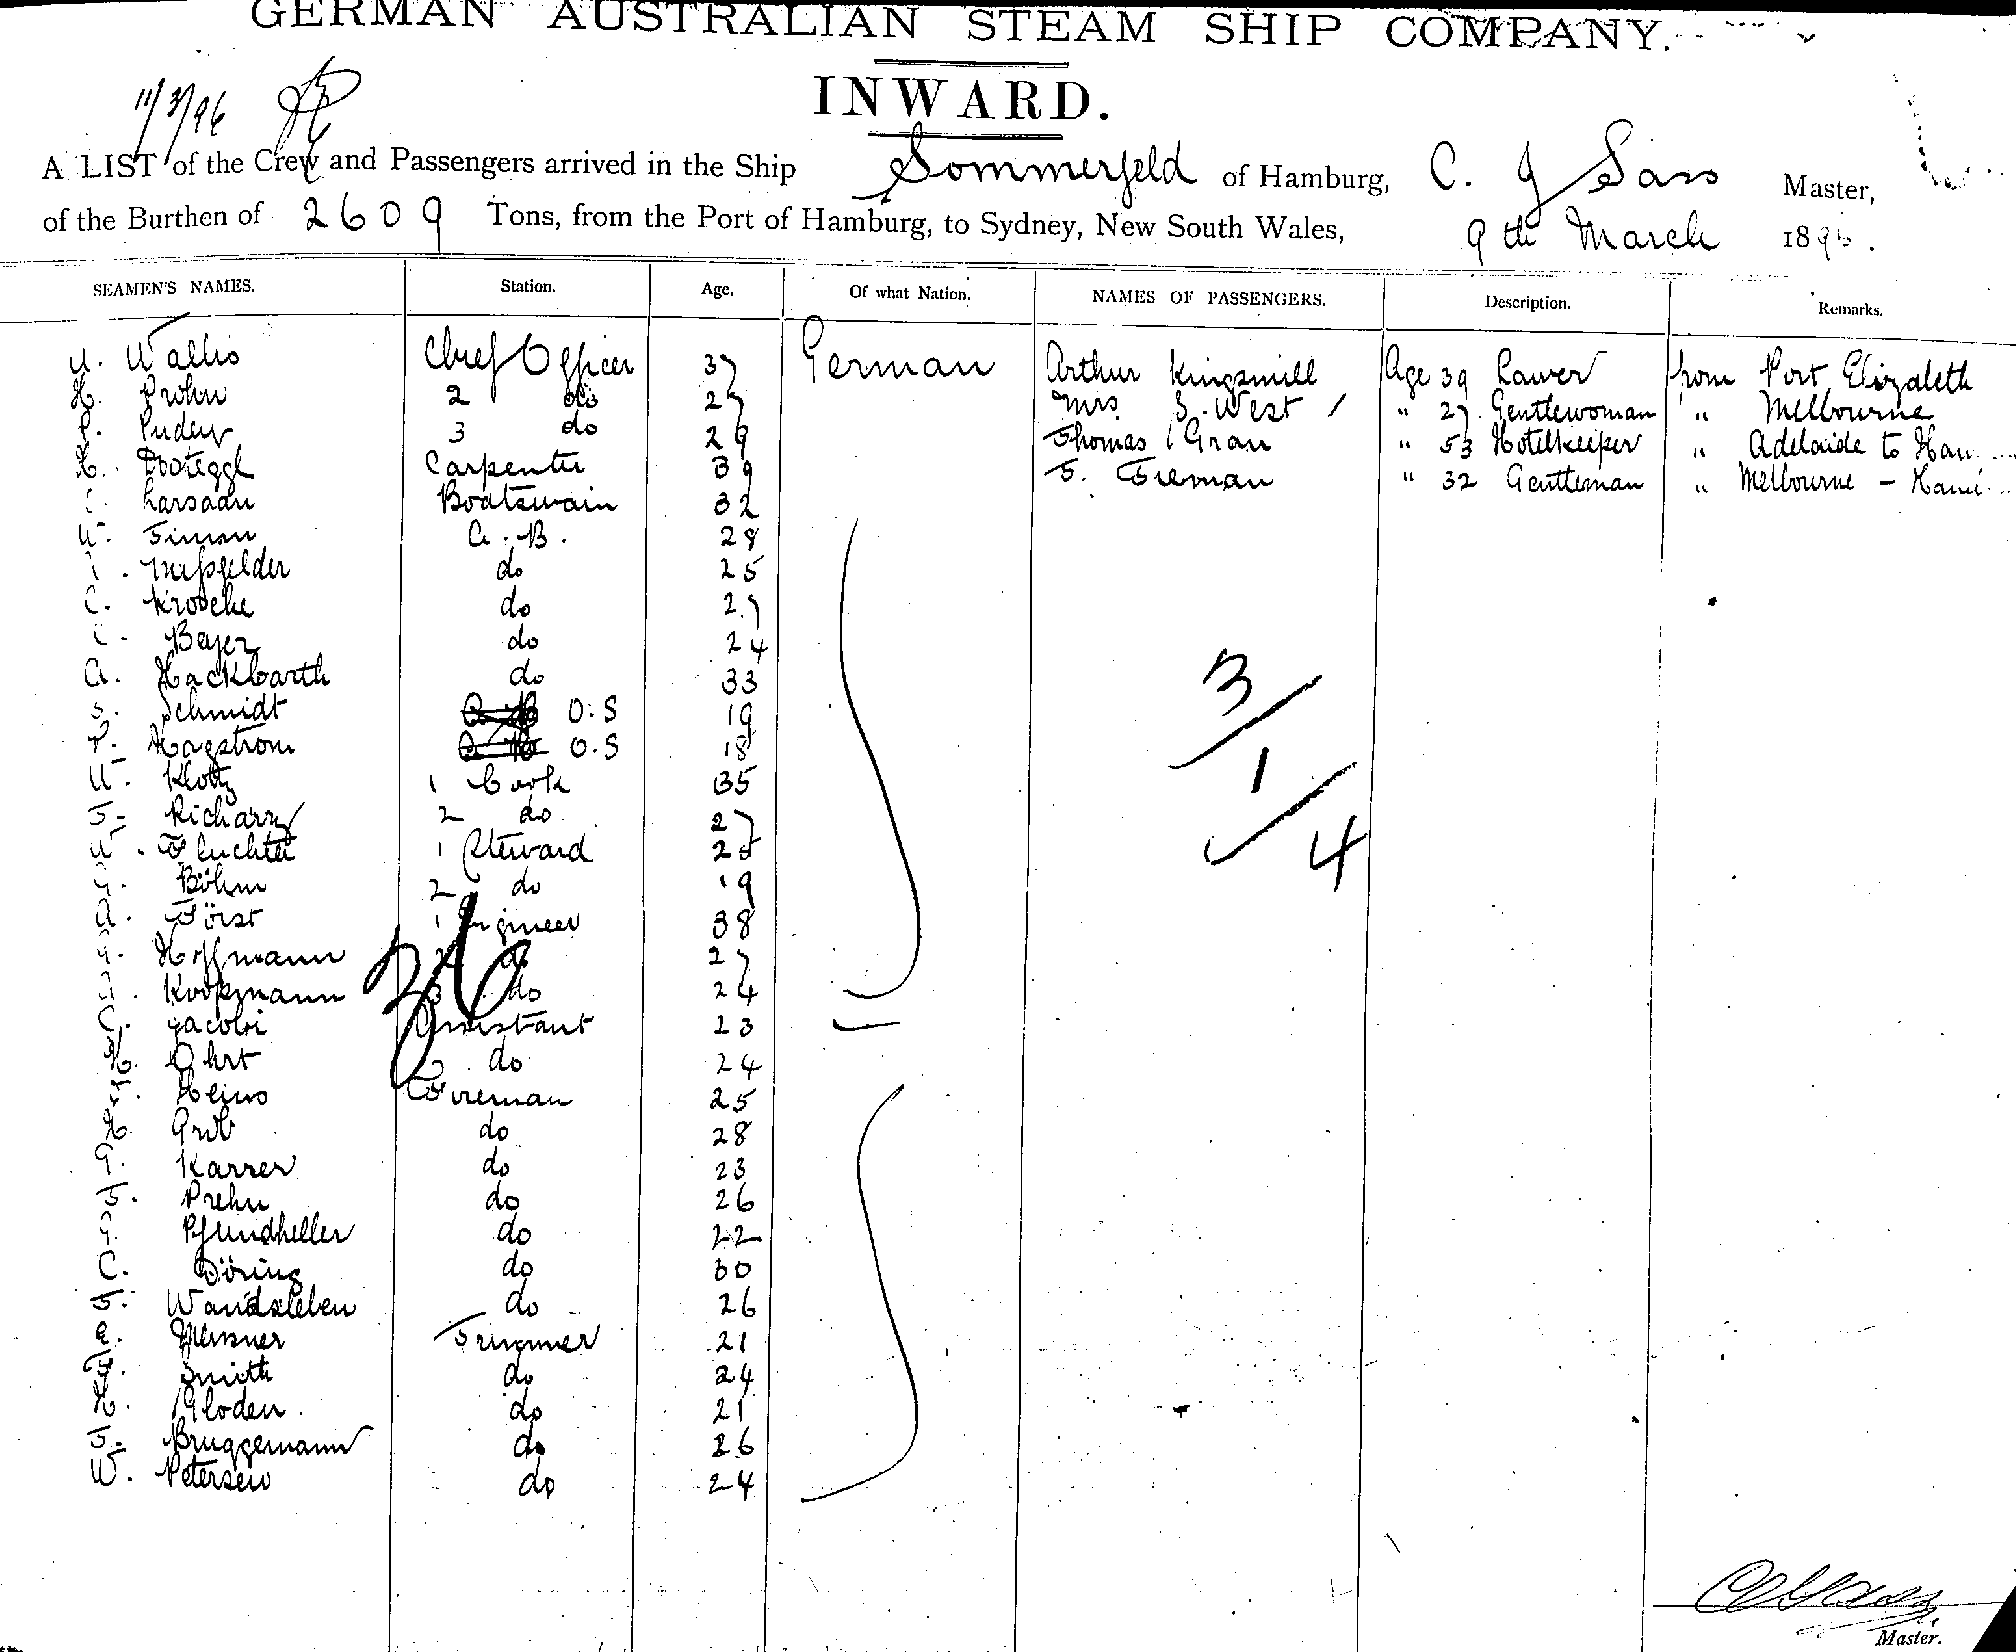 GERMAN AUSTRALIAN STEAM SHIP COMPANY.
INWARD.
11/3/96
A LIST of the Crew and Passengers arrived in the Ship Sommerfeld of Hamburg, C. J Sass Master,
of the Burthen of 2609 Tons, from the Port of Hamburg, to Sydney, New South Wales, 9th March 1896.
SEAMEN'S NAMES. Station. Age. Of what Nation. NAMES OF PASSENGERS. Description. Remarks.
Wallis Chief Officer 37 German Arthur Kingsmill Age 39 from Port Elizabeth
H. Prohn 2 do 27 Mrs S. West " 27 Gentlewoman " Melbourne
3 do 29 Thomas Gran " 53 Hotelkeeper " Adelaide to
H. Carpenter 39 " 32 Gentleman " Melbourne -
Larsaan Boatswain 32
Timan A.B. 28
do 25
C. Krosche do 27
Beyer do 24
A. Hackbarth do 33
S. Schmidt O.S 19
P. Hagstrom O.S 18
Klotz 1 Cook 35
2 do 27
1 Steward
Böhm 2 do 19
A. Först 1 Engineer 38
Hoffmann do 27
Koopmann 3 do 24
C. Jacobi Assistant 23
H. Ohrt do 24
Heins Fireman 25
H. Grib do 28
G. Karrer do 23
F. Prehn do 26
G. Pfundheller do 22
C. Döring do 30
F. Wandsleben do 26
Trimmer 21
Smith do 24
H. Gloden do 21
F. Bruggemann do 26
W. Petersen do 24
36
3
1
4
Master.